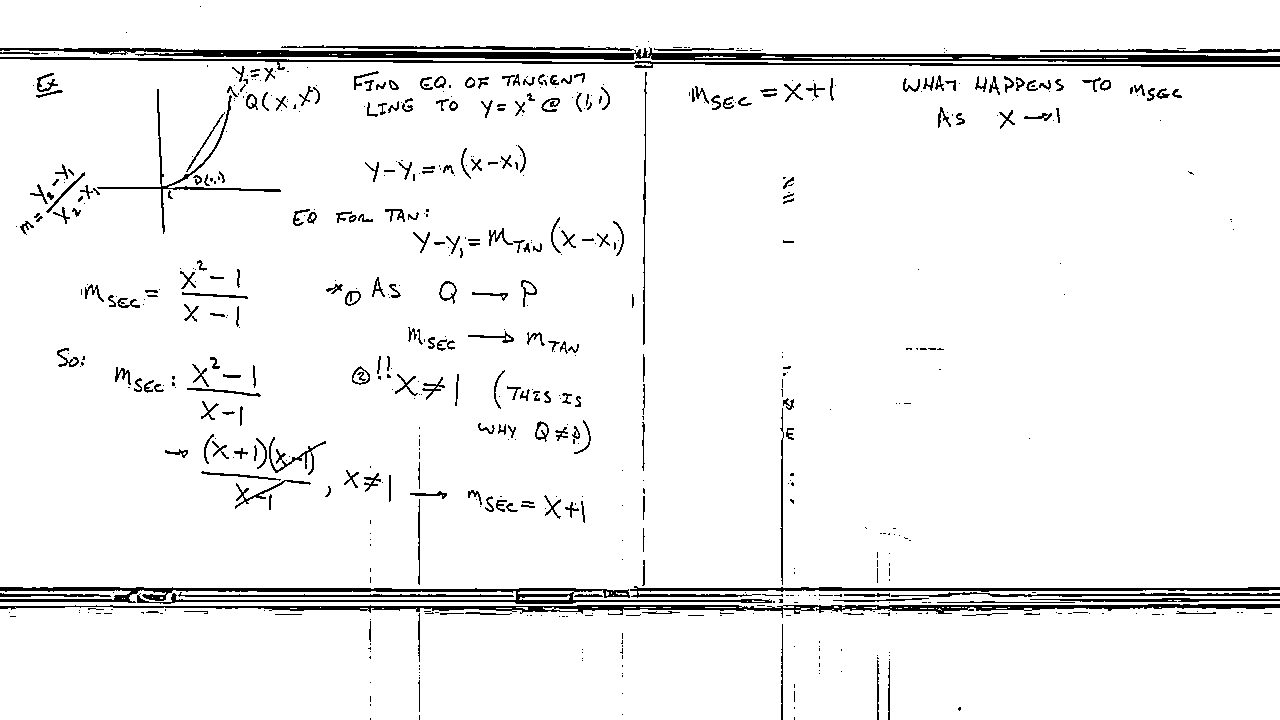 Ex
y=x²
Q(x, x²)
P(1,1)
1
m = y₂-y₁ / x₂-x₁
FIND EQ. OF TANGENT
LINE TO y=x² @ (1,1)
y-y₁=m(x-x₁)
EQ FOR TAN:
y-y₁=m_TAN (x-x₁)
m_SEC = x²-1 / x-1
* ① AS Q → P
m_SEC → m_TAN
So:
m_SEC : x²-1 / x-1
② !! x≠1 (THIS IS
WHY Q≠P)
→ (x+1)(x-1) / x-1 , x≠1 → m_SEC = x+1
m_SEC = x+1
WHAT HAPPENS TO m_SEC
AS x→1